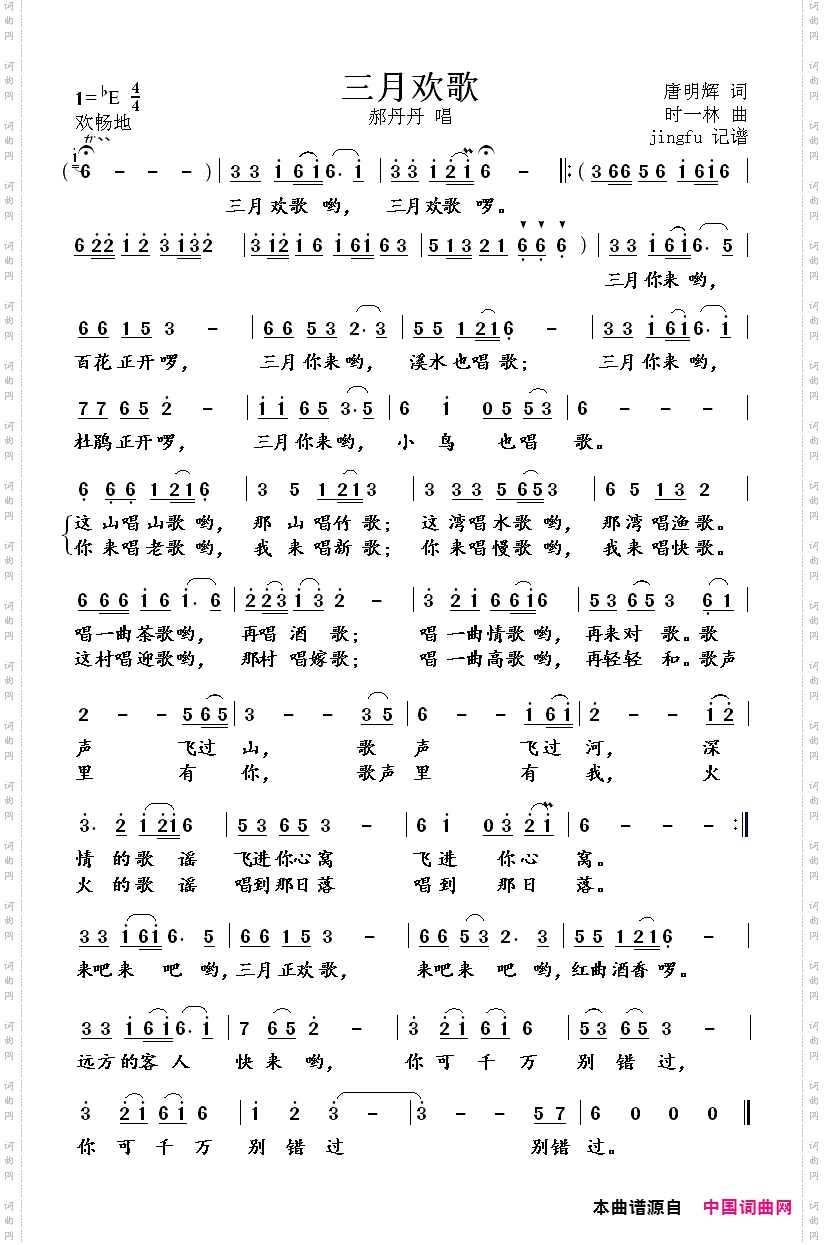 三月欢歌
1=♭E 4/4
唐明辉 词
欢畅地
郝丹丹 唱
时一林 曲
jingfu 记谱
( 6 - - - ) | 3 3 1 6 1 6. 1 | 3 3 1 2 1 6 - ‖: ( 3 6 6 5 6 1 6 1 6 |
三月欢歌 哟， 三月欢歌 啰。
6 2 2 1 2 3 1 3 2 | 3 1 2 1 6 1 6 1 6 3 | 5 1 3 2 1 6 6 6 ) | 3 3 1 6 1 6. 5 |
三月你来 哟，
6 6 1 5 3 - | 6 6 5 3 2. 3 | 5 5 1 2 1 6 - | 3 3 1 6 1 6. 1 |
百花正开啰， 三月你来哟， 溪水也唱歌； 三月你来 哟，
7 7 6 5 2 - | 1 1 6 5 3. 5 | 6 1 0 5 5 3 | 6 - - - |
杜鹃正开啰， 三月你来哟， 小 鸟 也唱 歌。
6 6 6 1 2 1 6 | 3 5 1 2 1 3 | 3 3 3 5 6 5 3 | 6 5 1 3 2 |
这山唱山歌哟， 那山唱竹歌； 这湾唱水歌哟， 那湾唱渔歌。
你来唱老歌哟， 我来唱新歌； 你来唱慢歌哟， 我来唱快歌。
6 6 6 1 6 1. 6 | 2 2 3 1 3 2 - | 3 2 1 6 6 1 6 | 5 3 6 5 3 6 1 |
唱一曲茶歌哟， 再唱 酒 歌； 唱一曲情歌哟， 再来对 歌。歌
这村唱迎歌哟， 那村 唱嫁歌； 唱 一曲高歌哟， 再轻轻 和。歌声
2 - - 5 6 5 | 3 - - 3 5 | 6 - - 1 6 1 | 2 - - 1 2 |
声 飞过 山， 歌 声 飞过 河， 深
里 有 你， 歌声 里 有 我， 火
3. 2 1 2 1 6 | 5 3 6 5 3 - | 6 1 0 3 2 1 | 6 - - - :‖
情 的歌 谣 飞进你心窝 飞进 你心 窝。
火 的歌 谣 唱到那日落 唱到 那日 落。
3 3 1 6 1 6. 5 | 6 6 1 5 3 - | 6 6 5 3 2. 3 | 5 5 1 2 1 6 - |
来吧来 吧 哟， 三月正欢歌， 来吧来 吧 哟， 红曲酒香啰。
3 3 1 6 1 6. 1 | 7 6 5 2 - | 3 2 1 6 1 6 | 5 3 6 5 3 - |
远方的客 人 快来 哟， 你可 千 万 别错过，
3 2 1 6 1 6 | 1 2 3 - | 3 - - 5 7 | 6 0 0 0 ‖
你 可 千 万 别错过 别错 过。
本曲谱源自 中国词曲网
词曲网